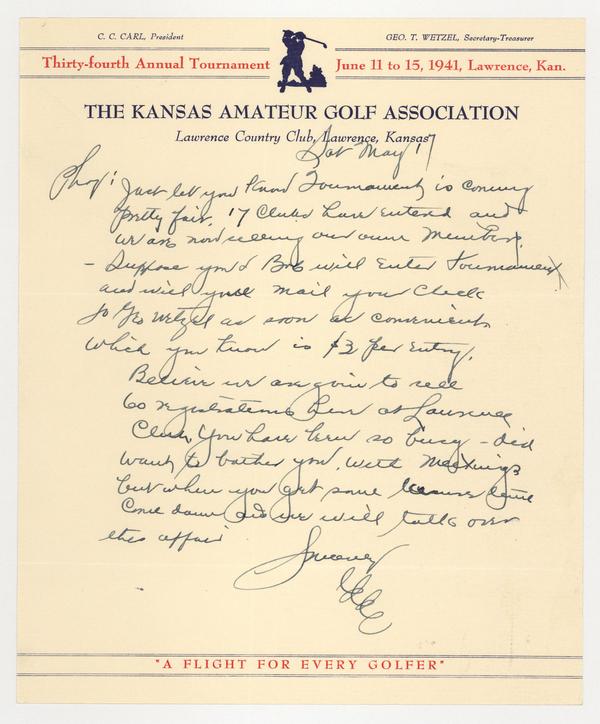 C. C. CARL, President
GEO. T. WETZEL, Secretary-Treasurer
Thirty-fourth Annual Tournament
June 11 to 15, 1941, Lawrence, Kan.
THE KANSAS AMATEUR GOLF ASSOCIATION
Lawrence Country Club, Lawrence, Kansas
Sat May 17
Phog:
Just let you know Tournament is coming
pretty fair. 17 Clubs have entered and
we are now selling our own Members.
- Suppose you & Bob will enter Tournament
and will you mail you Check
to Geo Wetzel as soon as convenient
which you know is $3 per entry.
Believe we are goin to sell
60 registrations here at Lawrence
Club. You have been so busy - did
want to bother you with Meetings
but when you get some time
Come down and we will talk over
this affair
Sincerely
"A FLIGHT FOR EVERY GOLFER"